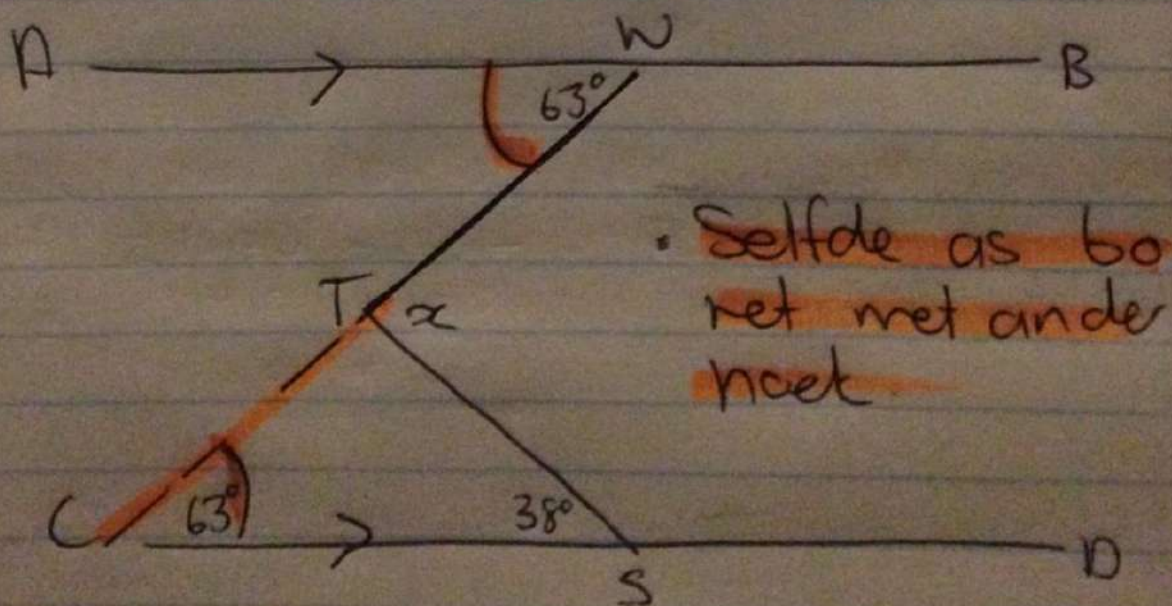 A W B
63°
T x
· Selfde as bo
net met ander
hoek
C 63° 38° D
S